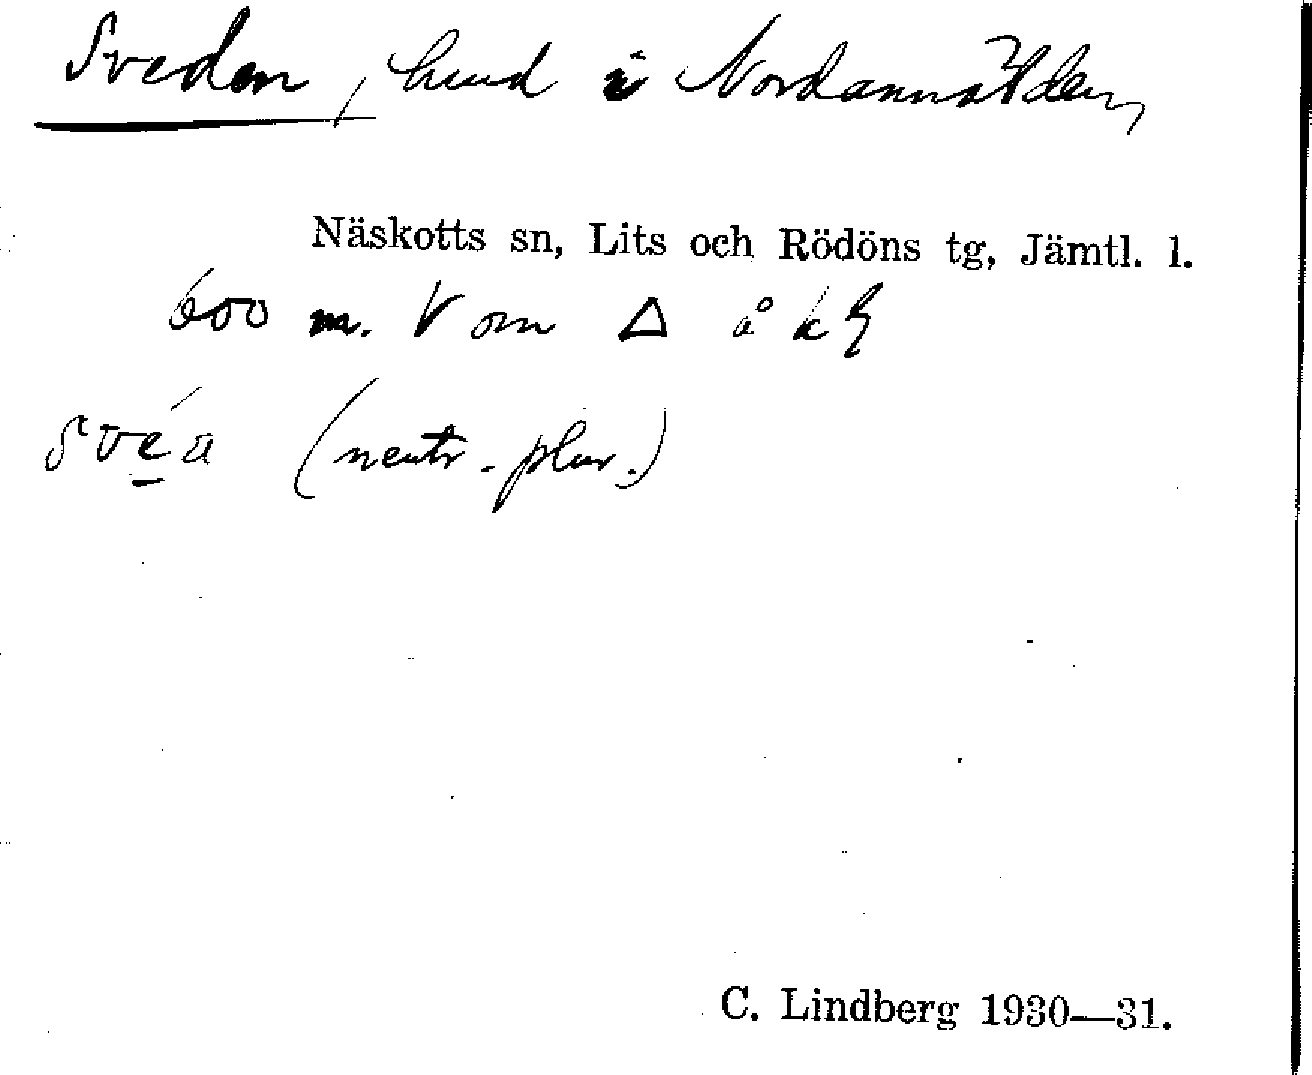 Sveden, hmd i Nordannälden,
Näskotts sn, Lits och Rödöns tg, Jämtl. l.
600 m. V om △ å k
svéa (neutr. plur.)
C. Lindberg 1930—31.